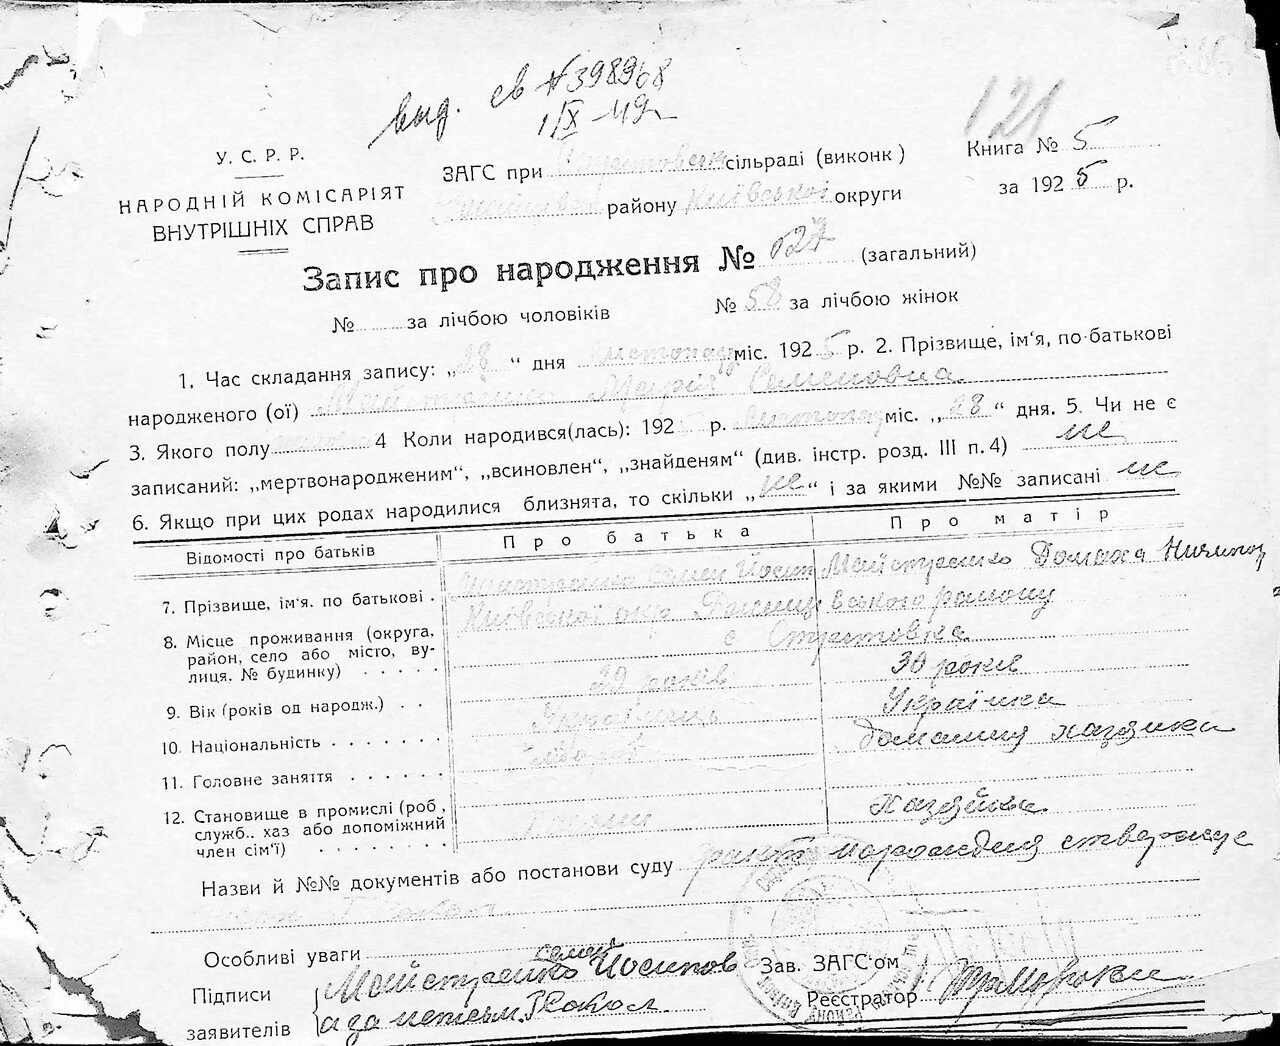 вид. св № 398968
1/IX - 49 г
121
У. С. Р. Р.
НАРОДНІЙ КОМІСАРІЯТ
ВНУТРІШНІХ СПРАВ
ЗАГС при сільраді (виконк )
району Київської округи
Книга № 5
за 1925 р.
Запис про народження № (загальний)
№ за лічбою чоловіків № 58 за лічбою жінок
1. Час складання запису: „28 “ дня листопад міс. 1925 р. 2. Прізвище, ім‘я, по-батькові
народженого (ої) Майстренко Марія Семеновна
3. Якого полу 4 Коли народився(лась): 192 р. листопад міс. „28 “ дня. 5. Чи не є
записаний: „мертвонародженим“, „всиновлен“, „знайденям“ (див. інстр. розд. III п. 4) не
6. Якщо при цих родах народилися близнята, то скільки „не“ і за якими №№ записані не
Відомості про батьків Про батька Про матір
7. Прізвище, ім‘я. по батькові . Майстренко Семен Йосип Майстренко Домаха Ничипор
8. Місце проживання (округа, Київської окр вського району
район, село або місто, ву- с
лиця. № будинку) . . . .
9. Вік (років од народж.) . . 29 років 30 років
10. Національність . . . . . . . Українець Українка
11. Головне заняття . . . . . . хлібороб домашня хазяйка
12. Становище в промислі (роб ,
служб.. хаз або допоміжний Хазяйка
член сім‘ї) . . . . . . . .
Назви й №№ документів або постанови суду факт народження ствержує
Особливі уваги
Підписи Майстренко семен Йосипов Зав. ЗАГС‘ом
заявителів Реєстратор